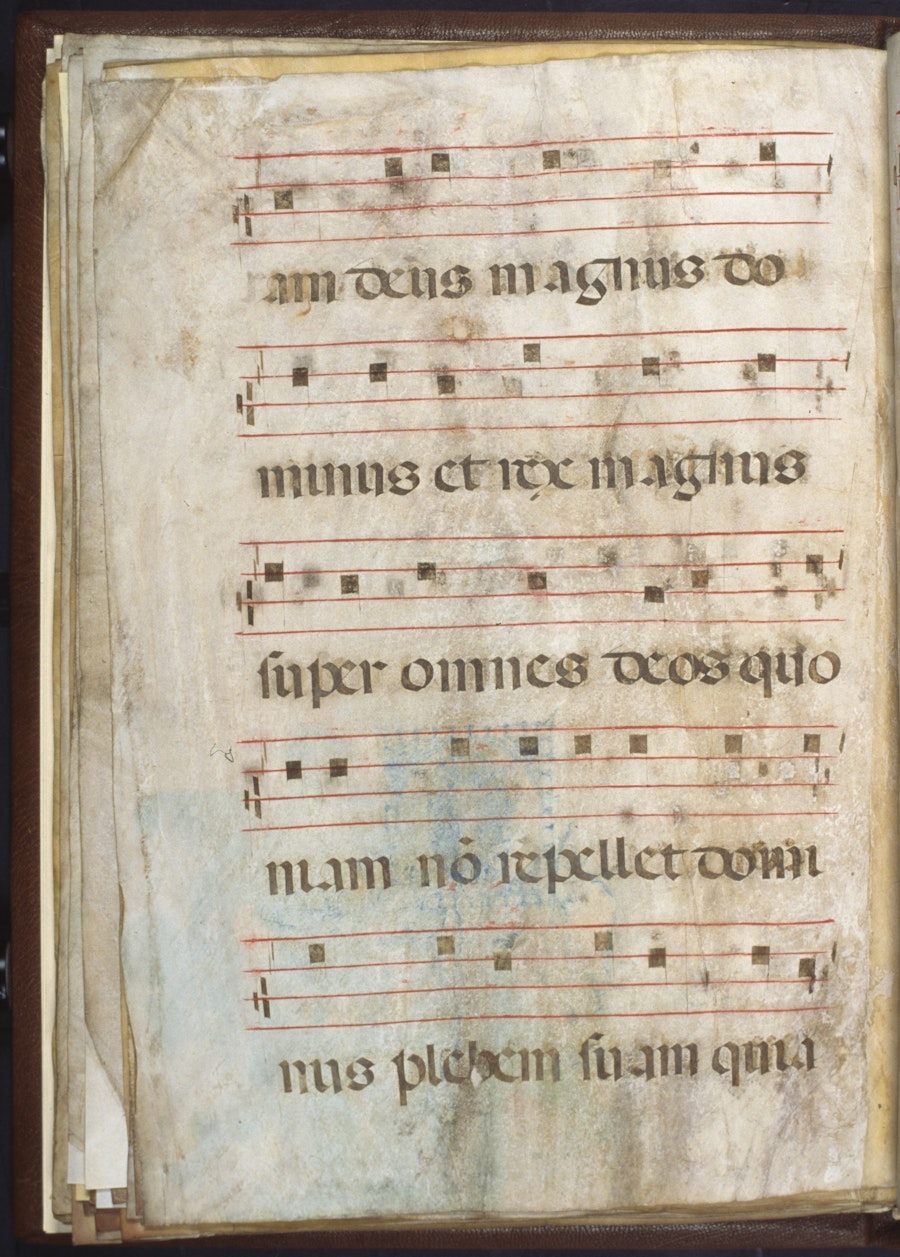 am deus magnus do
minus et rex magnus
super omnes deos quo
niam nō repellet domi
nus plebem suam quia